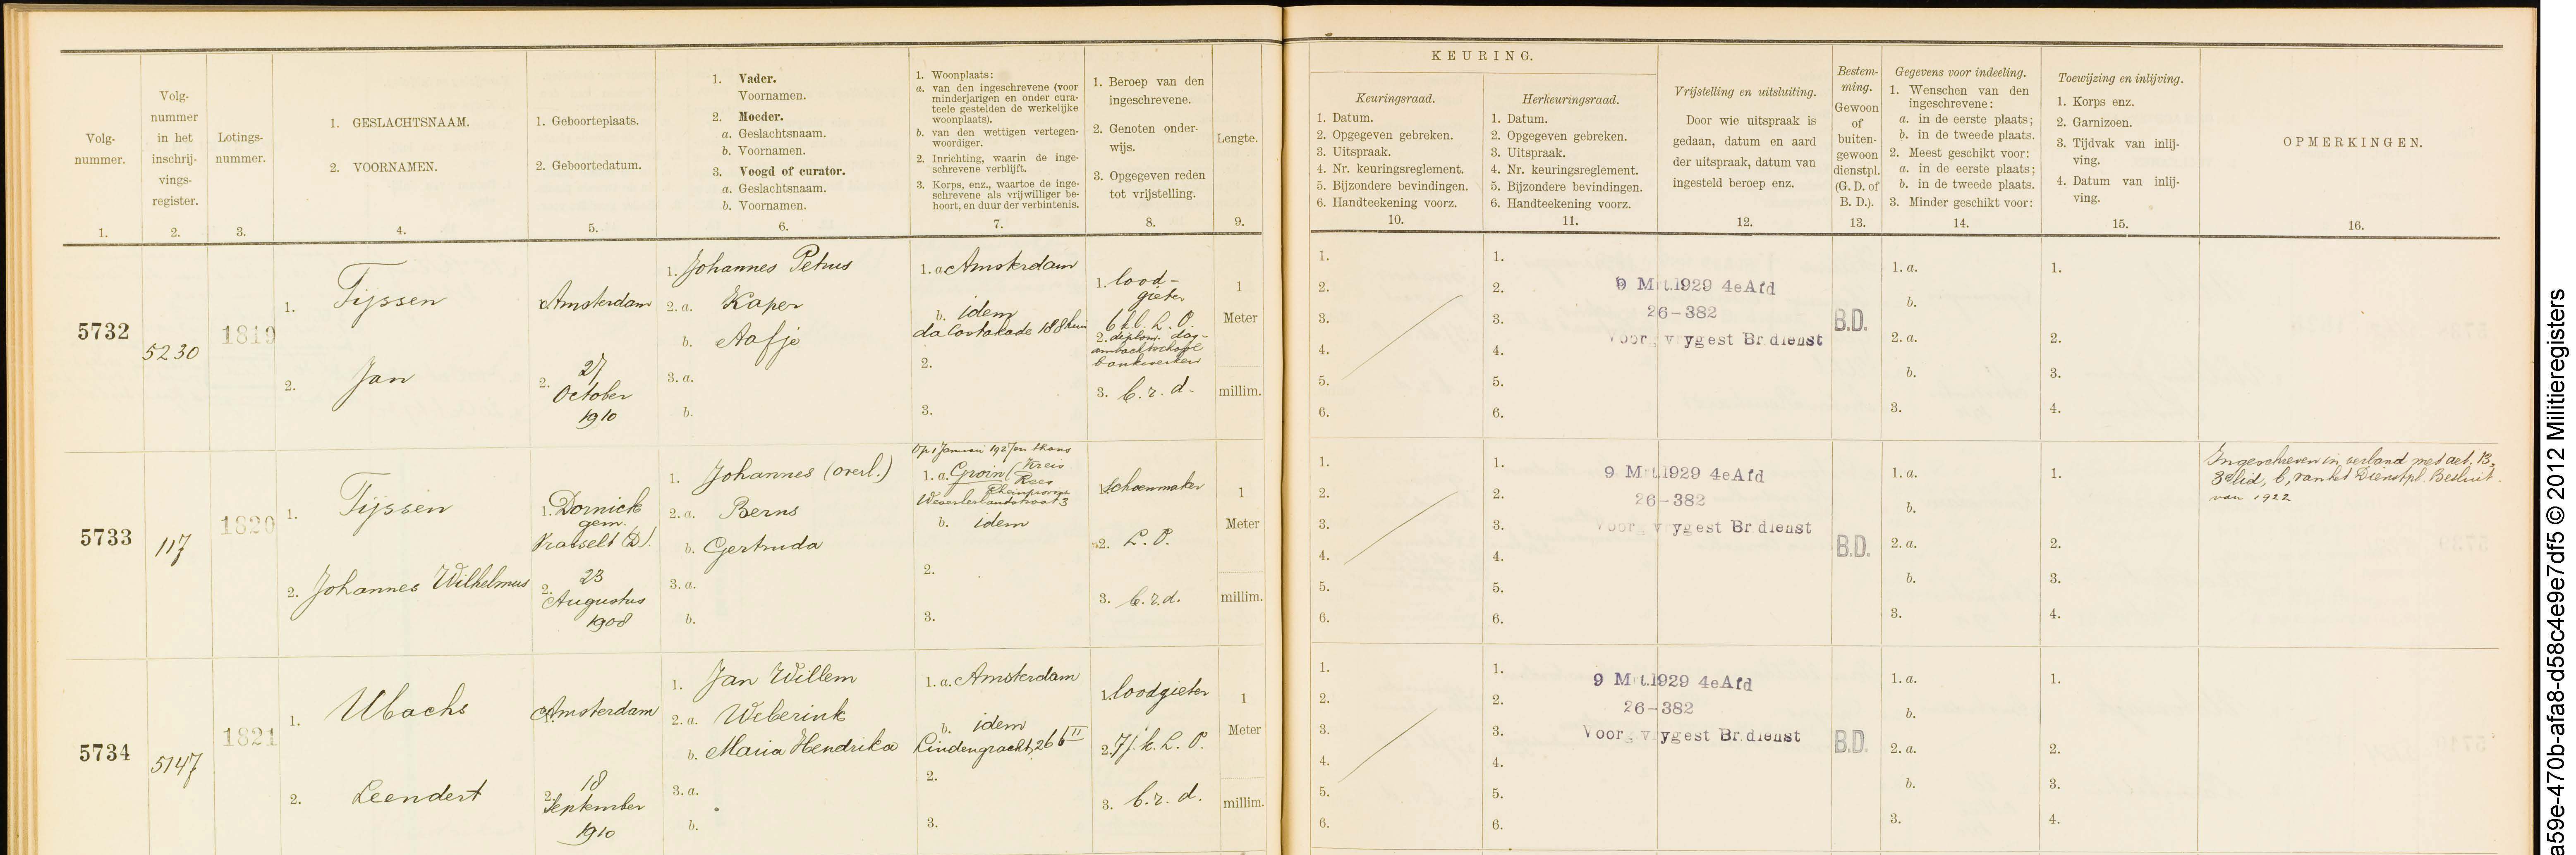 KEURING.
Volg-
nummer.
1.
Volg-
nummer
in het
inschrij-
vings-
register.
2.
Lotings-
nummer.
3.
1. GESLACHTSNAAM.
2. VOORNAMEN.
4.
1. Geboorteplaats.
2. Geboortedatum.
5.
1. Vader.
Voornamen.
2. Moeder.
a. Geslachtsnaam.
b. Voornamen.
3. Voogd of curator.
a. Geslachtsnaam.
b. Voornamen.
6.
1. Woonplaats:
a. van den ingeschrevene (voor
minderjarigen en onder cura-
teele gestelden de werkelijke
woonplaats).
b. van den wettigen vertegen-
woordiger.
2. Inrichting, waarin de inge-
schrevene verblijft.
3. Korps, enz., waartoe de inge-
schrevene als vrijwilliger be-
hoort, en duur der verbintenis.
7.
1. Beroep van den
ingeschrevene.
2. Genoten onder-
wijs.
3. Opgegeven reden
tot vrijstelling.
8.
Lengte.
9.
Keuringsraad.
1. Datum.
2. Opgegeven gebreken.
3. Uitspraak.
4. Nr. keuringsreglement.
5. Bijzondere bevindingen.
6. Handteekening voorz.
10.
Herkeuringsraad.
1. Datum.
2. Opgegeven gebreken.
3. Uitspraak.
4. Nr. keuringsreglement.
5. Bijzondere bevindingen.
6. Handteekening voorz.
11.
Vrijstelling en uitsluiting.
Door wie uitspraak is
gedaan, datum en aard
der uitspraak, datum van
ingesteld beroep enz.
12.
Bestem-
ming.
Gewoon
of
buiten-
gewoon
dienstpl.
(G. D. of
B. D.).
13.
Gegevens voor indeeling.
1. Wenschen van den
ingeschrevene:
a. in de eerste plaats;
b. in de tweede plaats.
2. Meest geschikt voor:
a. in de eerste plaats;
b. in de tweede plaats.
3. Minder geschikt voor:
14.
Toewijzing en inlijving.
1. Korps enz.
2. Garnizoen.
3. Tijdvak van inlij-
ving.
4. Datum van inlij-
ving.
15.
OPMERKINGEN.
16.
5732
5230
1819
1. Tijssen
2. Jan
Amsterdam
2. 27
October
1910
1. Johannes Petrus
2. a. Kaper
b. Aafje
3. a.
b.
1. a Amsterdam
b. idem
da Costakade 188 huis
2.
3.
1. lood-
gieter
6 kl. L. O.
2. diplom. dag-
ambachtschool
bankwerker
3. b. r. d.
1
Meter
millim.
1.
2.
3.
4.
5.
6.
1.
2.
3.
4.
5.
6.
9 Mrt.1929 4eAfd
26-382
Voorg vrygest Br dienst
B.D.
1. a.
b.
2. a.
b.
3.
1.
2.
3.
4.
5733
117
1820
1. Tijssen
2. Johannes Wilhelmus
1. Dornick
gem.
Vrasselt (D).
2. 23
Augustus
1908
1. Johannes (overl.)
2. a. Berns
b. Gertruda
3. a.
b.
Op 1 Januari 1927 en thans
1. a. Groin (Kreis
Rees
Rheinprovinz
Weverterlandstraat 3
b. idem
2.
3.
1. schoenmaker
2. L. O.
3. b. r. d.
1
Meter
millim.
1.
2.
3.
4.
5.
6.
1.
2.
3.
4.
5.
6.
9 Mrt.1929 4eAfd
26-382
Voorg vrygest Br dienst
B.D.
1. a.
b.
2. a.
b.
3.
1.
2.
3.
4.
Ingeschreven in verband met art. 13,
3e lid, b, van het Dienstpl. Besluit
van 1922
5734
5147
1821
1. Ubachs
2. Leendert
Amsterdam
2. 18
September
1910
1. Jan Willem
2. a. Weberink
b. Maria Hendrika
3. a.
b.
1. a. Amsterdam
b. idem
Lindengracht 266 II
2.
3.
1. loodgieter
2. 7 j. k. L. O.
3. b. r. d.
1
Meter
millim.
1.
2.
3.
4.
5.
6.
1.
2.
3.
4.
5.
6.
9 Mrt.1929 4eAfd
26-382
Voorg vrygest Br.dienst
B.D.
1. a.
b.
2. a.
b.
3.
1.
2.
3.
4.
a59e-470b-afa8-d58c4e9e7df5 © 2012 Militieregisters